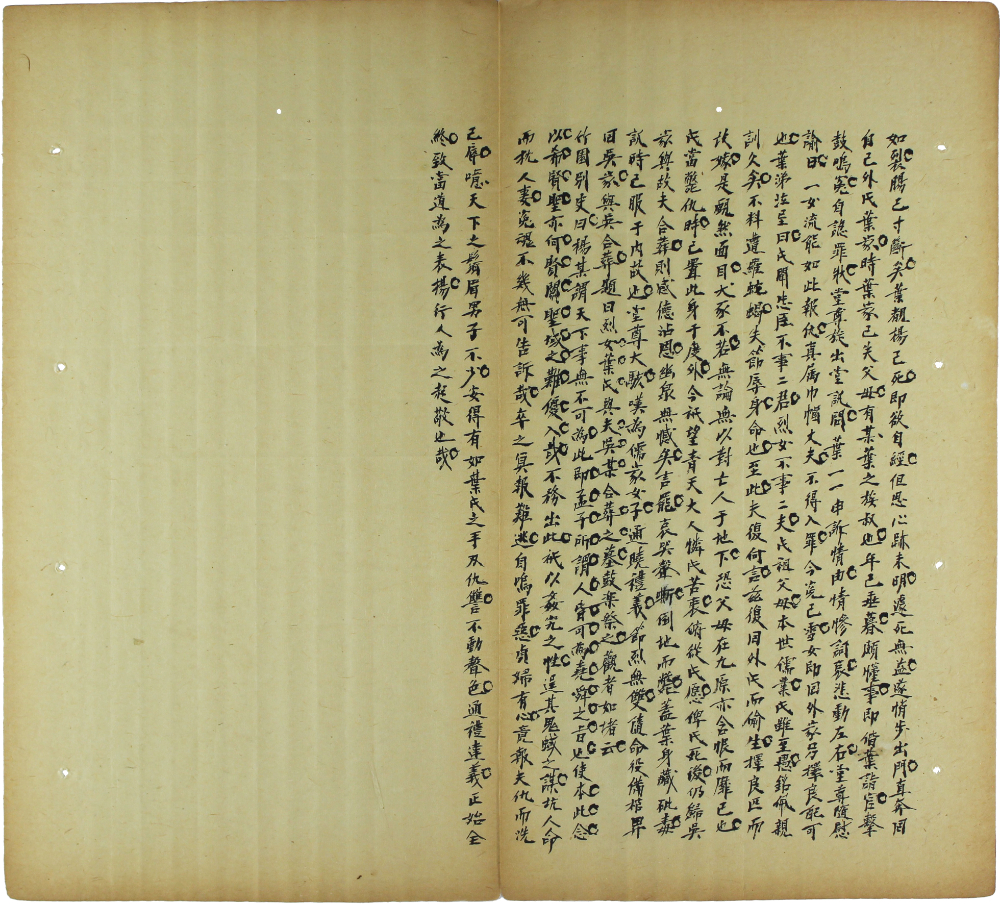 如裂腸已寸斷矣葉覩楊已死即欲自經但思心跡未明遽死無益遂悄步出門直奔回
自己外氏葉家時葉家已失父母有某葉之族叔也年已垂暮頗懂事即偕葉詣官擊
鼓鳴冤自認罪狀堂尊旋出堂訊問葉一一申訴情由情慘詞哀悲動左右堂尊隨慰
諭曰一女流能如此報仇真屬巾幗丈夫不得入罪今冤已雪女即回外家另擇良配可
也葉涕泣呈曰氏聞忠臣不事二君烈女不事二夫氏祖父母本世儒業氏雖至愚銘佩親
訓久矣不料遭羅蛇蝎失節辱身命也至此夫復何言茲復回外氏而偷生擇良匹而
改嫁是靦然面目犬豕不若無論無以對亡人于地下恐父母在九原亦含恨而靡已也
氏當斃仇時已置此身于度外今祇望青天大人憐氏苦衷俯從氏愿俾氏死後仍歸吳
家與故夫合葬則感德沾恩幽泉無憾矣言罷哀哭聲嘶倒地而斃蓋葉身藏砒毒
訊時已服于內故也堂尊大駭嘆為儒家女子通曉禮義節烈無雙隨命役備棺畀
回吳家與吳合葬題曰烈女葉氏與夫吳某合葬之墓鼓樂祭之觀者如堵云
竹園別史曰楊某謂天下事無不可為此即孟子所謂人皆可為堯舜之旨也使本此念
以希賢聖亦何賢關聖域之難優入哉不務出此祇以姦宄之性逞其鬼蜮之謀抗人命
而犹人妻冤魂不幾無可告訴哉卒之冥報難逃自鳴罪惡貞婦有心竟報夫仇而洗
己辱噫天下之鬚眉男子不少安得有如葉氏之手刃仇讐不動聲色通禮達義正始全
終致當道為之表揚行人為之起敬也哉